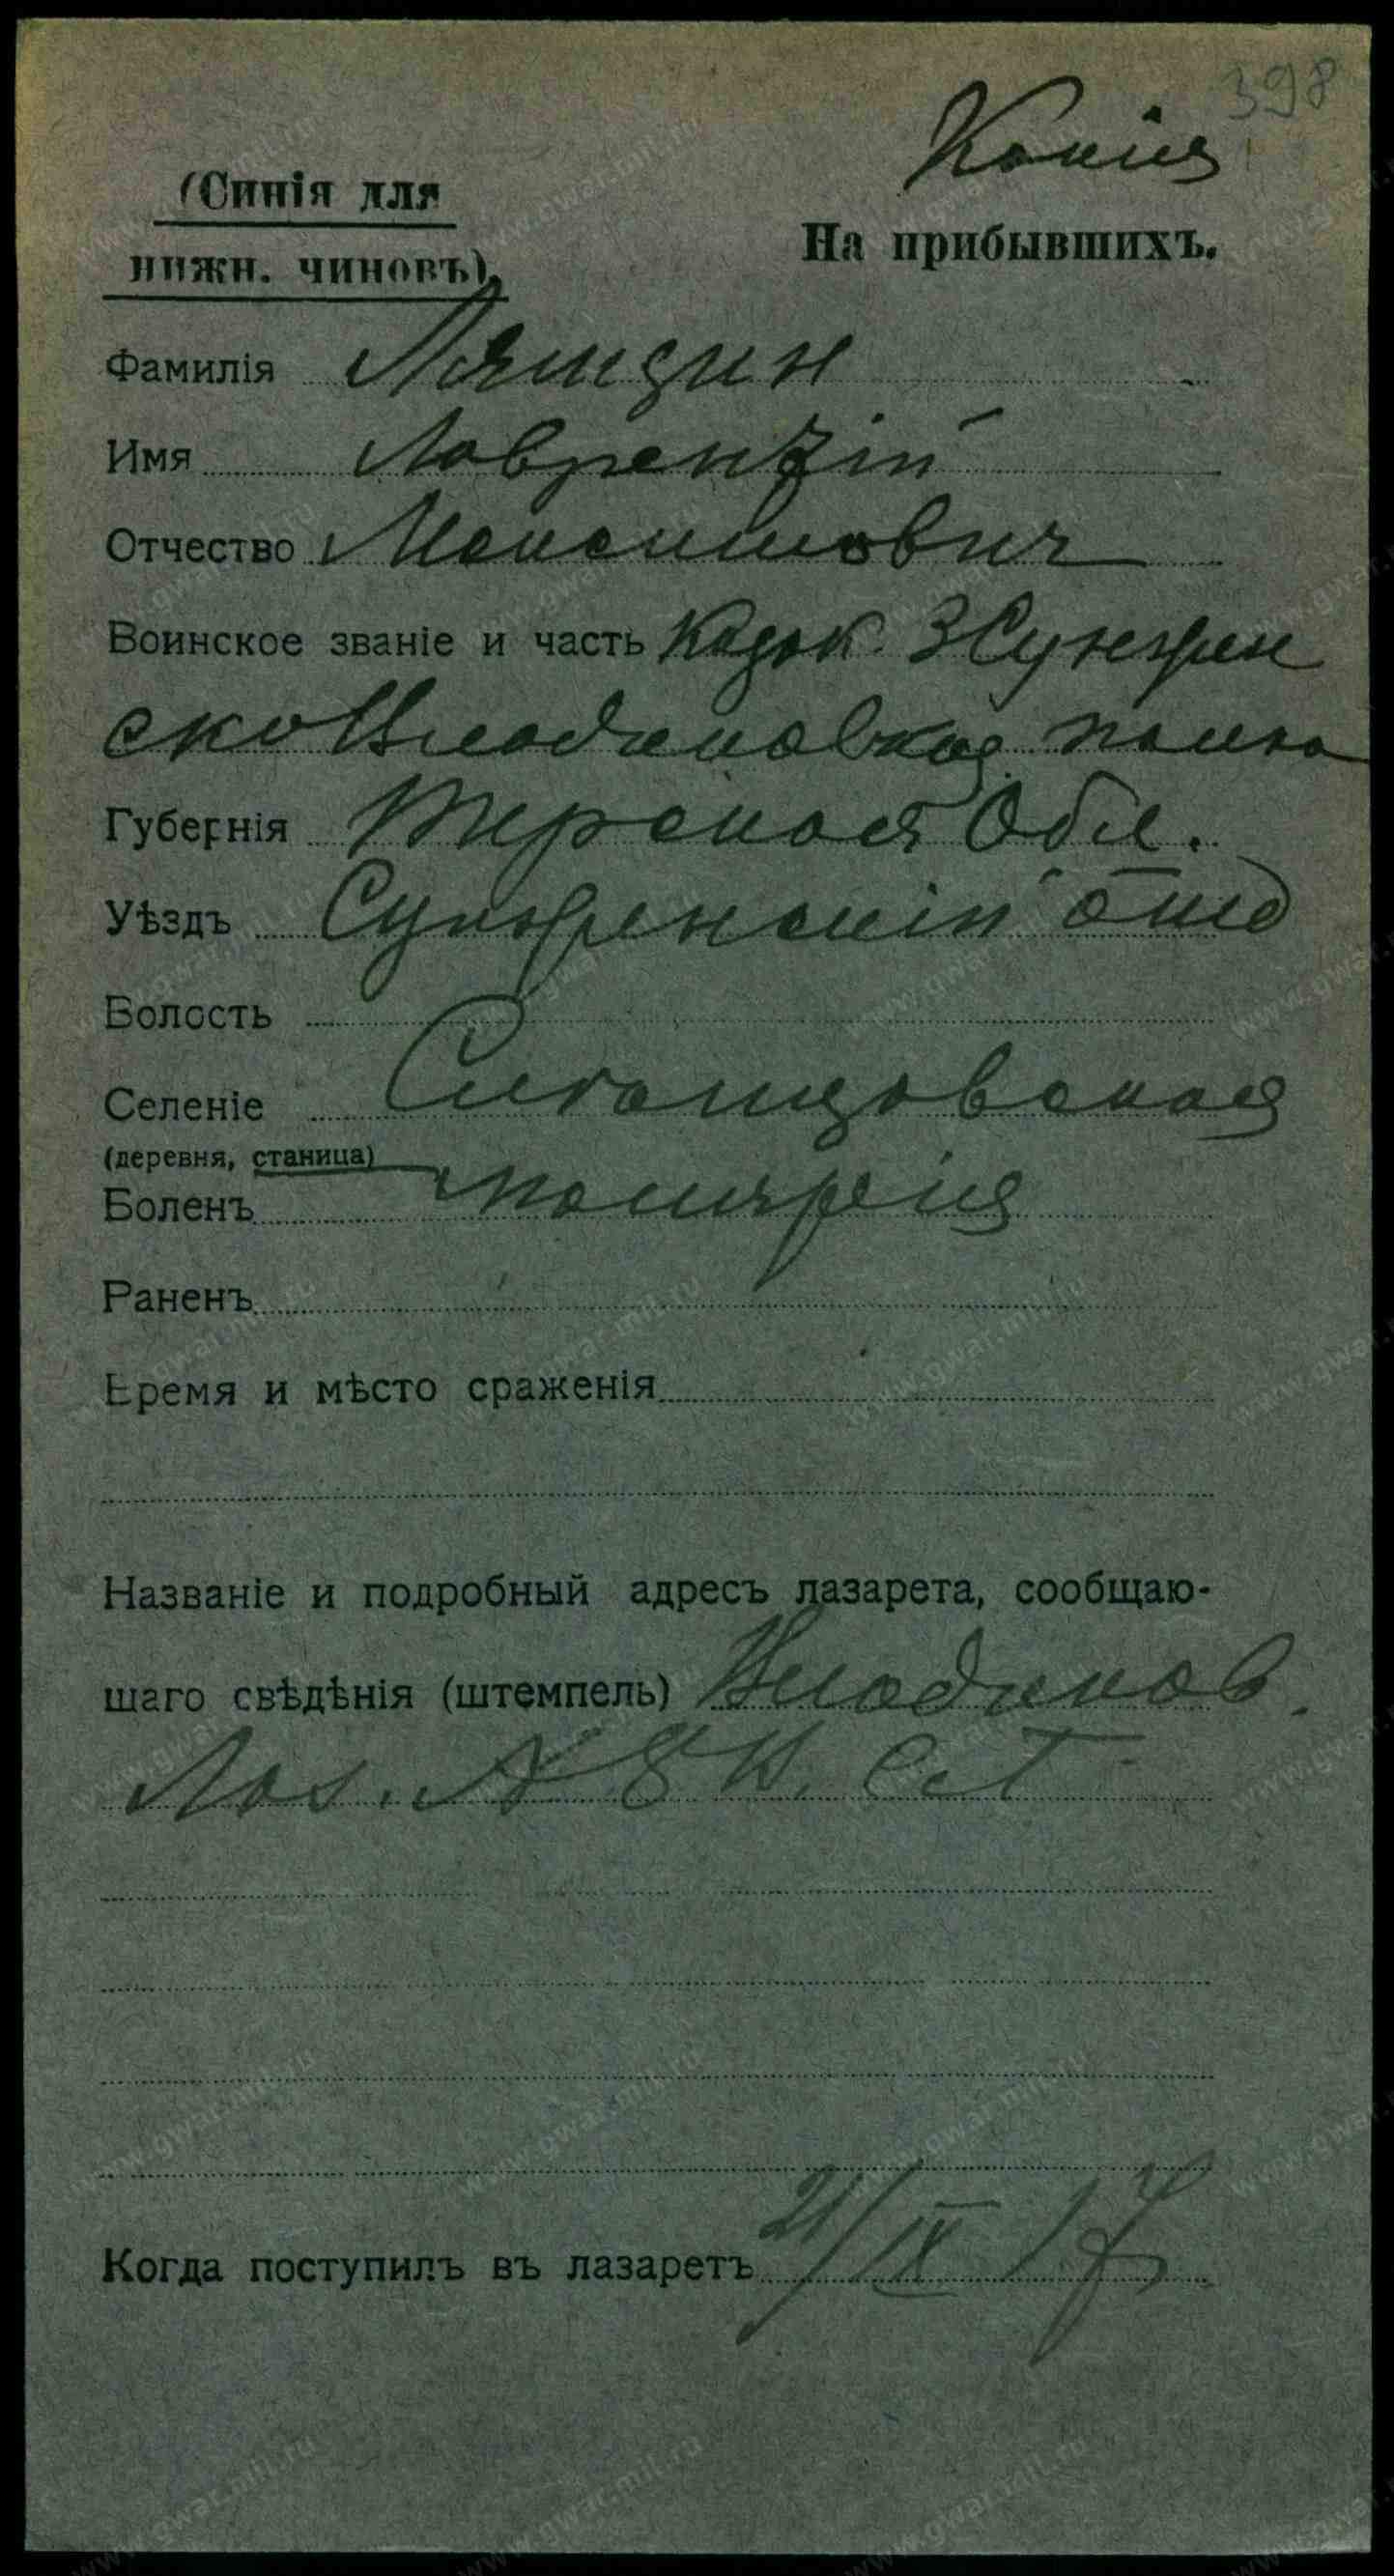 398
Копия
(Синія для
нижн. чиновъ).
На прибывшихъ.
Фамилія Лямцин
Имя Лаврентій
Отчество Максимович
Воинское званіе и часть Казак 3 Сунжен
ско Владикавказ полка
Губернія Терская Обл.
Уѣздъ Сунженскій отд
Волость
Селеніе Слепцовская
(деревня, станица)
Боленъ малярія
Раненъ
Время и мѣсто сраженія
Названіе и подробный адресъ лазарета, сообщаю-
шаго свѣдѣнія (штемпель) Владикав.
Лаз.
Когда поступилъ въ лазаретъ 21/IX 17